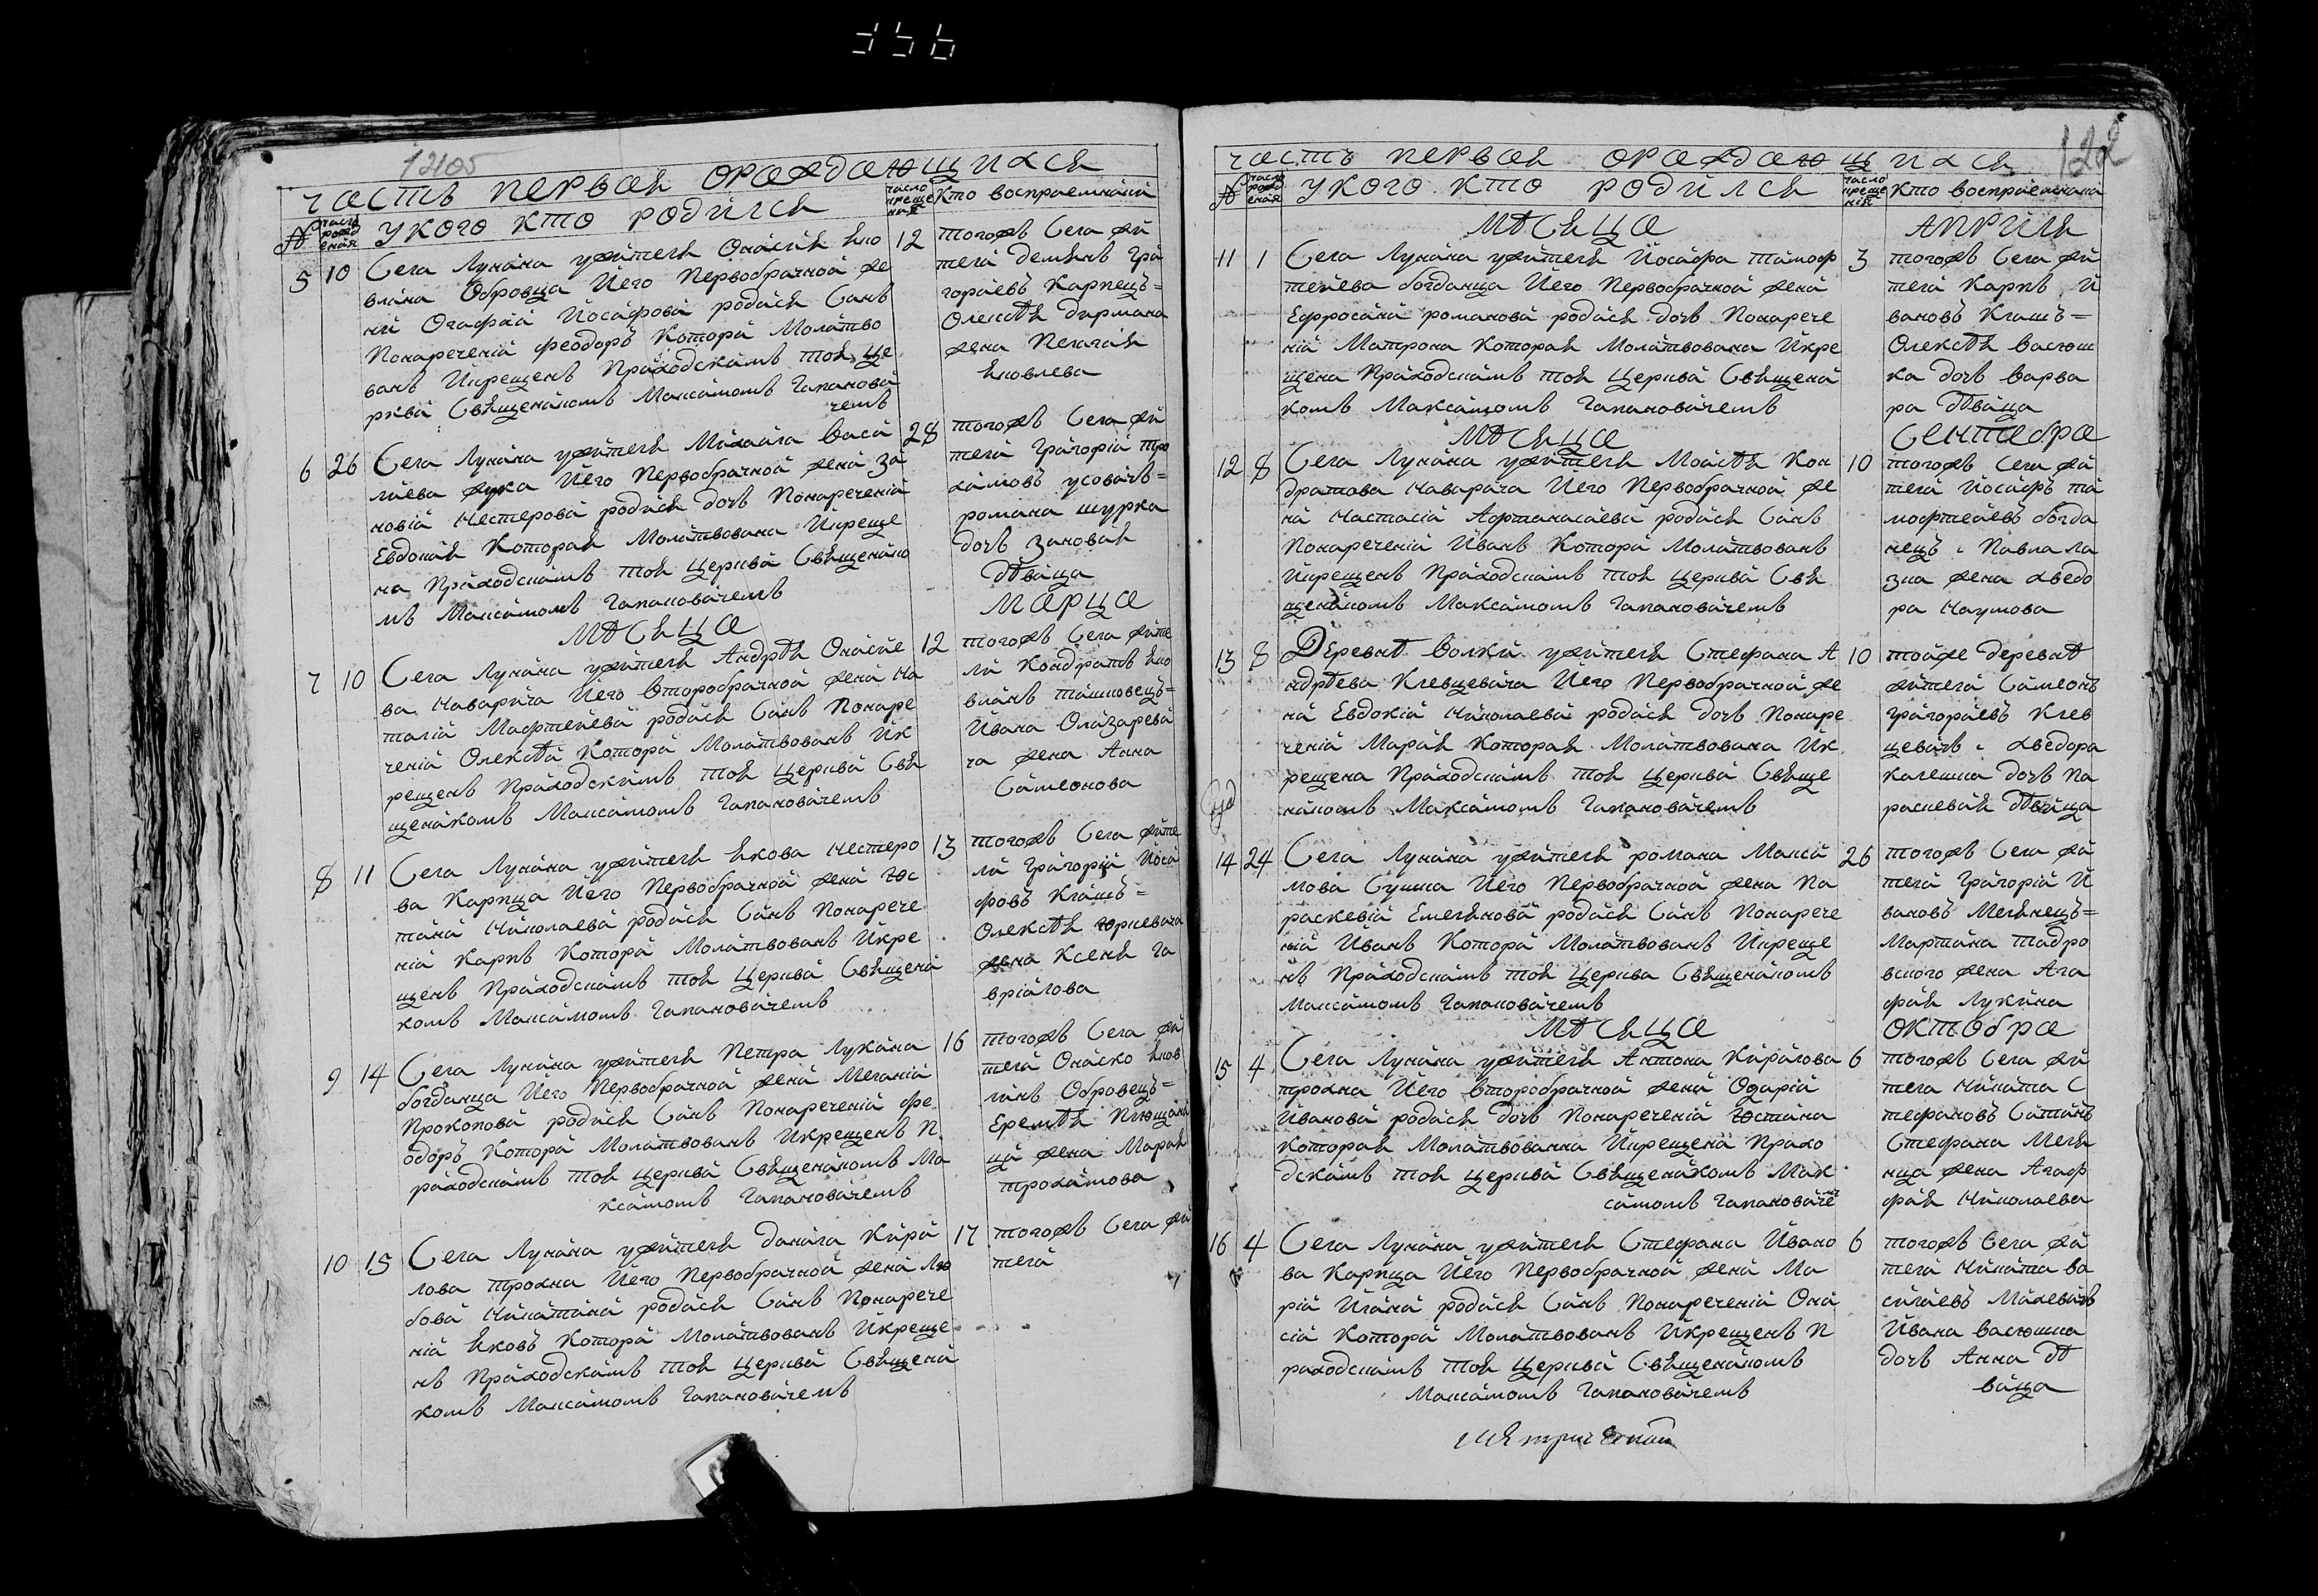 12105
часть первая ораждающихся
№
число рожд ения
у кого кто родился
число креще ния
кто восприемники
5 10 Села Лунина ужителя Онисия Яко 12
влина Обровца Ѵего первобрачной же
ни Огафии Йосифови родися Синъ
понареченій Феодоръ Котори Молитво
ванъ Ѵкрещенъ Приходскимъ тоя Це
рквы Священикомъ Максимомъ Гапанови
чемъ
тогожъ Села жи
тели Демянъ Гри
гориевъ Карпецъ=
Олексѣя Дирмана
жена Пелагия
Яковлева
6 26 Села Лунина ужителя Михаила Васи 28
лиева жука Ѵего первобрачной жени Зи
новіи Нестерови родися дочъ понареченія
Евдокия Которая Молитвована Ѵкреще
на Приходскимъ тоя Церкви Священико
мъ Максимомъ Гапановичемъ
тогожъ Села жи
тели Григорій Тро
химовъ Усовичъ=
романа шурка
дочъ Зиновия
дѣвица
мѣсяца Марца
7 10 Села Лунина ужителя Андрѣя Онисие 12
ва Наварича Ѵего второбрачной жени На
талии Мафтеиеви родися Синъ понаре
чений Олексѣй Котори Молитвованъ Ѵк
рещенъ Приходскимъ тоя Церкви Свя
щеникомъ Максимомъ Гапановичемъ
тогожъ Села жите
ли Кондратъ Яко
влинъ Ташковецъ=
Ѵвана Олизареви
ча жена Анна
Симеонова
8 11 Села Лунина ужителя Якова Нестеро 13
ва Карпца Ѵего первобрачной жени Юс
тини Николаеви родися Синъ понарече
ній Карпъ Котори Молитвованъ Ѵкре
щенъ Приходскимъ тоя Церкви Священи
комъ Максимомъ Гапановичемъ
тогожъ Села жите
ли Григорій Йоси
фовъ Клашъ=
Олексѣя Юркевича
жена Ксеня Га
вріилова
9 14 Села Лунина ужителя Петра Лукина 16
богданца Ѵего первобрачной жени Меланіи
Прокопови родися Синъ понареченій Фе
одоръ Котори Молитвованъ Ѵкрещенъ П
риходскимъ тоя Церкви Священикомъ Ма
ксимомъ Гапановичемъ
тогожъ Села жи
тели Ониско Яков
линъ Обровецъ=
Еремѣя Плющани
ци жена Мария
трохимова
10 15 Села Лунина ужителя Данила Кири 17
лова трохна Ѵего первобрачной жени Лю
бови Никитини родися Синъ понарече
ній Яковъ Котори Молитвованъ Ѵкреще
нъ Приходскимъ тоя Церкви Священи
комъ Максимомъ Гапановичемъ
тогожъ Села жи
тели
122
часть первая ораждающихся
№
число рожд ения
у кого кто родился
число креще ния
кто восприемники
мѣсяца Априля
11 1 Села Лунина ужителя Йосифа Тимоф 3
теиева богданца Ѵего первобрачной жени
Ефросини романови родися дочъ понарече
ній Матрона Которая Молитвована Ѵкре
щена Приходскимъ тоя Церкви Священи
комъ Максимомъ Гапановичемъ
тогожъ Села жи
тели Карпъ Ѵ
вановъ Клашъ=
Олексѣя Васюш
ка дочъ Варва
ра дѣвица
мѣсяца Сентебра
12 8 Села Лунина ужителя Моисѣя Кон 10
дратова Наварича Ѵего первобрачной же
ни Настасіи Афтанасиеви родися Синъ
понареченій Ѵванъ Котори Молитвованъ
Ѵкрещенъ Приходскимъ тоя Церкви Свя
щеникомъ Максимомъ Гапановичемъ
тогожъ Села жи
тели Йосифъ ти
мофтеиевъ богда
нецъ: Павла ла
зка жена хведо
ра Наумова
13 8 Деревнѣ Волки ужителя Стефана А 10
ндрѣева Клевцевича Ѵего первобрачной же
ни Евдокіи Николаеви родися дочъ понаре
ченій Мария Которая Молитвована Ѵк
рещена Приходскимъ тоя Церкви Свяще
никомъ Максимомъ Гапановичемъ
тойже деревнѣ
жители Симеонъ
Григориевъ Клев
цевичъ: хведора
калешка дочъ Па
раскевия дѣвица
14 24 Села Лунина ужителя романа Макси 26
мова Сушка Ѵего первобрачной жени Па
раскевіи Емелянови родися Синъ понарече
ній Ѵванъ Котори Молитвованъ Ѵкреще
нъ Приходскимъ тоя Церкви Священикомъ
Максимомъ Гапановичемъ
тогожъ Села жи
тели Григорій Ѵ
вановъ Мелянецъ=
Мартина тадро
вского жена Ага
фия Лукина
мѣсяца Октобра
15 4 Села Лунина ужителя Антона Кирилова 6
трохна Ѵего второбрачной жени Одаріи
Ѵванови родися дочъ понареченій Юстина
Которая Молитвованна Ѵкрещена Прихо
дскимъ тоя Церкви Священикомъ Мак
симомъ Гапановиче
тогожъ Села жи
тели Никита С
тефановъ Ситинъ
Стефана Меля
нца жена Агаф
фия Николаева
16 4 Села Лунина ужителя Стефана Ѵвано 6
ва Карпца Ѵего первобрачной жени Ма
ріи Ѵлини родися Синъ понареченій Они
сій Котори Молитвованъ Ѵкрещенъ П
риходскимъ тоя Церкви Священикомъ
Максимомъ Гапановичемъ
тогожъ Села жи
тели Никита Ва
силиевъ Михевичъ
Ѵвана Васюшка
дочъ Анна дѣ
вица